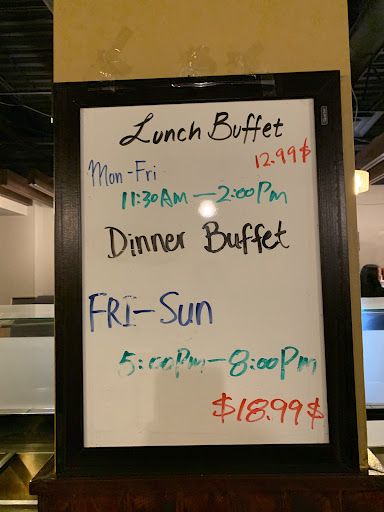 Lunch Buffet
Mon-Fri 12.99$
11:30AM — 2:00Pm
Dinner Buffet
FRI - Sun
5:00Pm - 8:00Pm
$18.99$